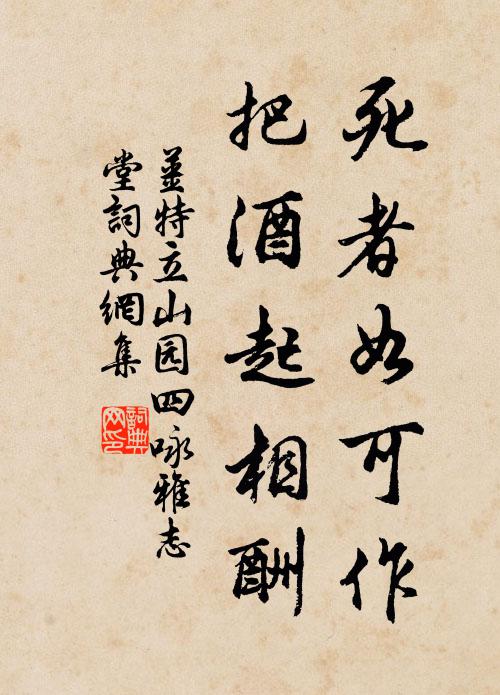 死者如可作
把酒起相酬
姜特立山园四咏雅志
堂詞典網集
詞典网印